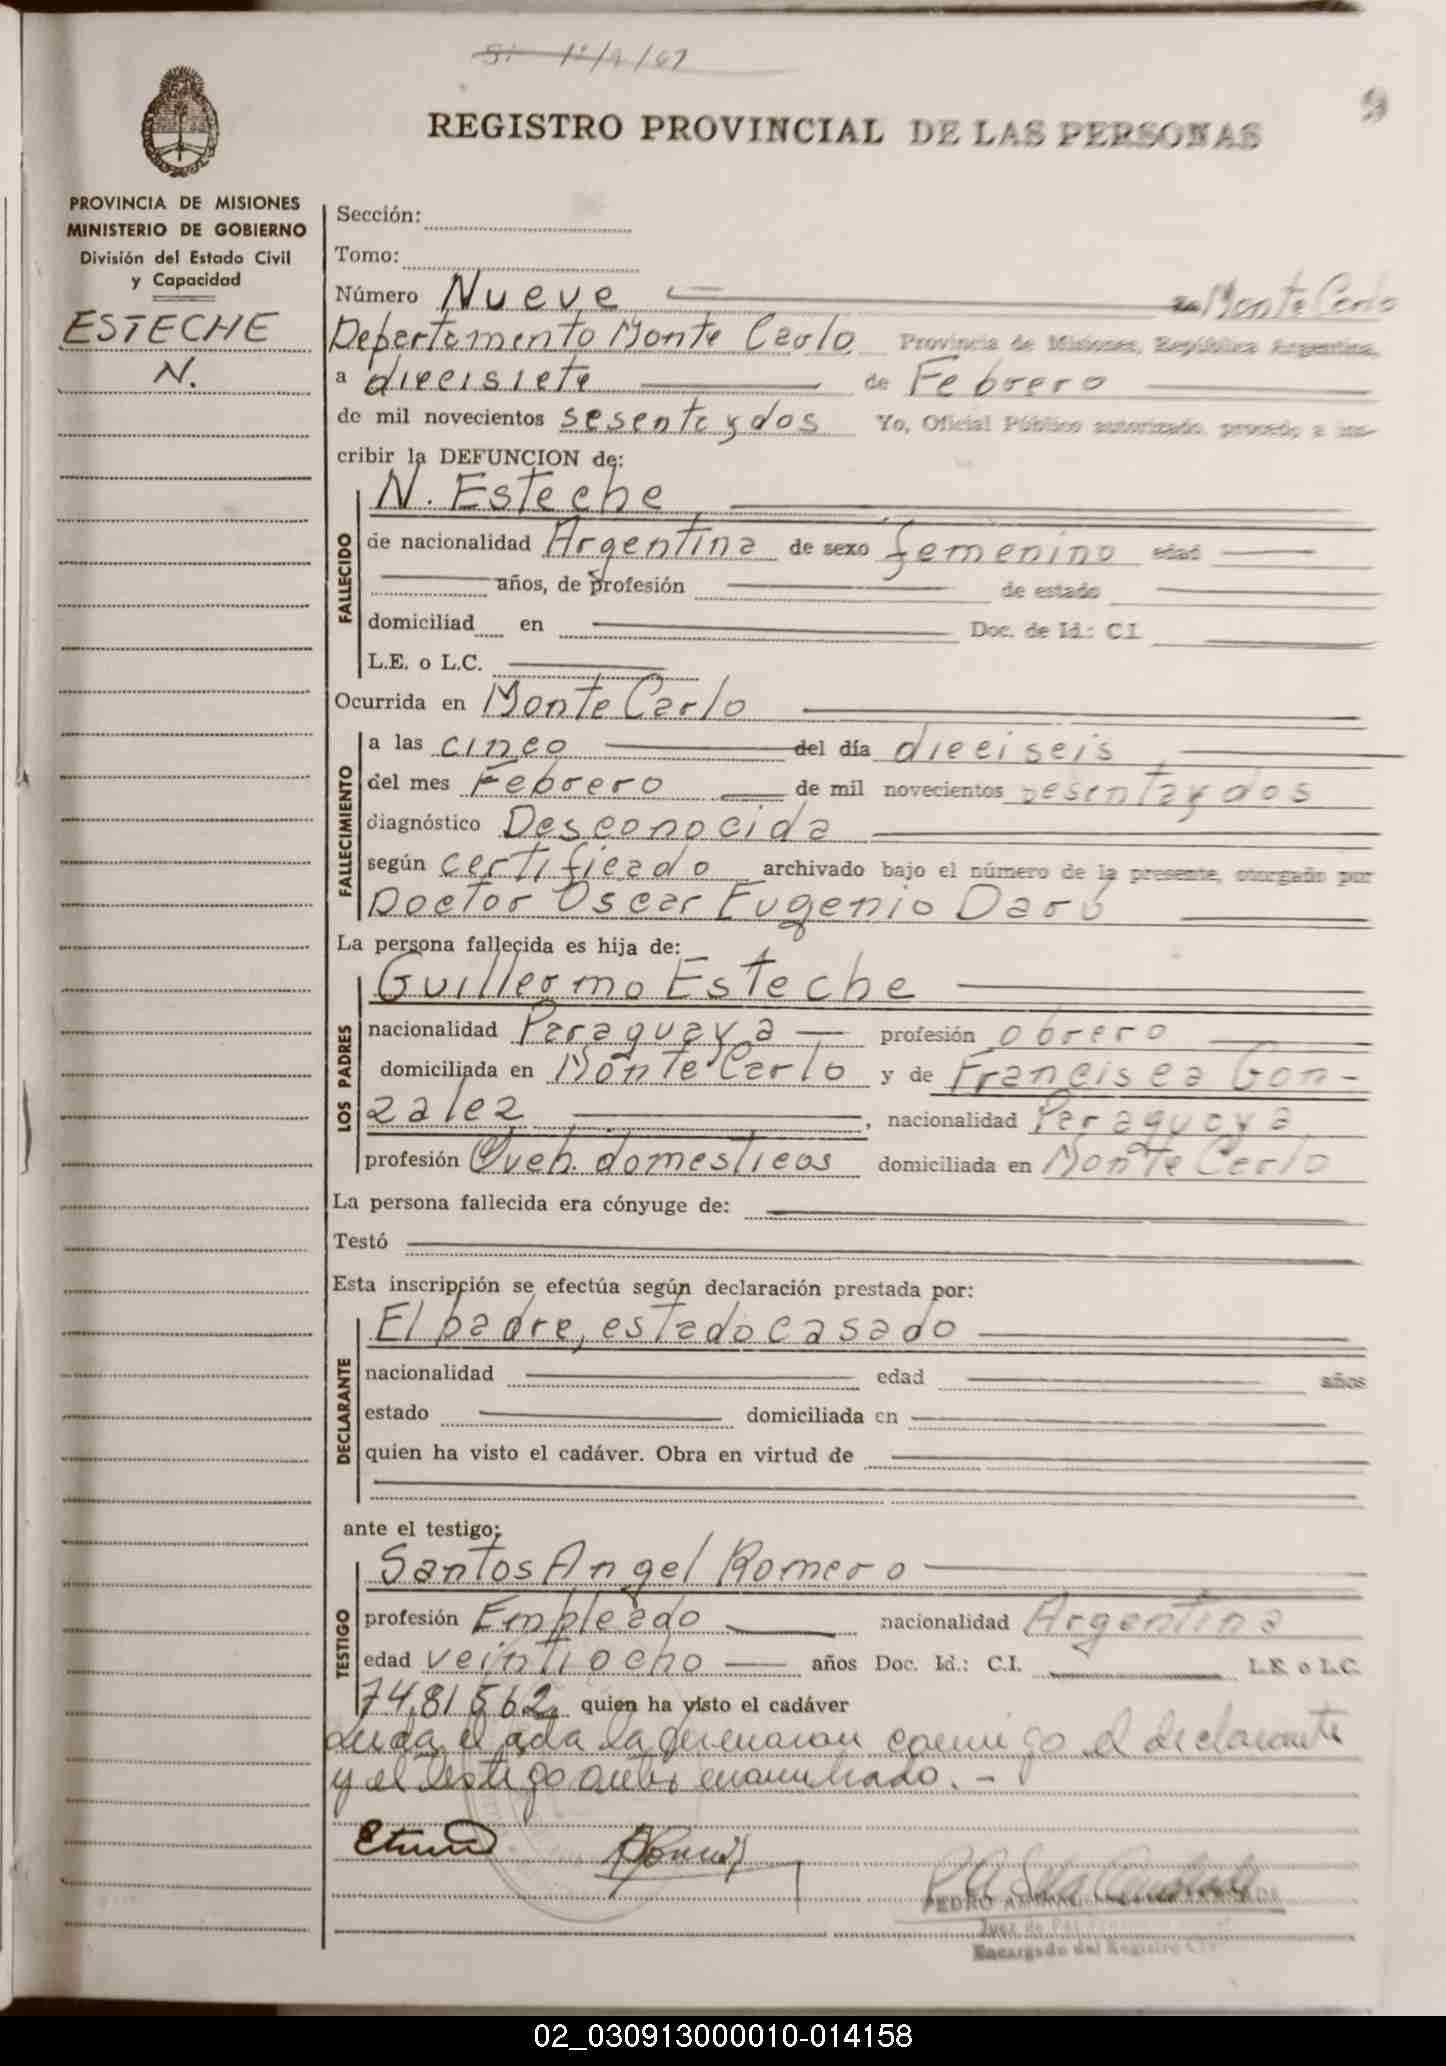 9
REGISTRO PROVINCIAL DE LAS PERSONAS
PROVINCIA DE MISIONES
MINISTERIO DE GOBIERNO
División del Estado Civil
y Capacidad
ESTECHE
N.
Sección:
Tomo:
Número Nueve en Monte Carlo
Departamento Monte Carlo Provincia de Misiones, República Argentina,
a diecisiete de Febrero
de mil novecientos sesenta y dos Yo, Oficial Público autorizado, procedo a ins-
cribir la DEFUNCION de:
N. Esteche
FALLECIDO
de nacionalidad Argentina de sexo femenino edad
años, de profesión de estado
domiciliad en Doc. de Id.: C.I.
L.E. o L.C.
Ocurrida en Monte Carlo
FALLECIMIENTO
a las cinco del día dieciseis
del mes Febrero de mil novecientos sesenta y dos
diagnóstico Desconocida
según certificado archivado bajo el número de la presente, otorgado por
Doctor Oscar Eugenio Daró
La persona fallecida es hija de:
LOS PADRES
Guillermo Esteche
nacionalidad Paraguaya profesión obrero
domiciliada en Monte Carlo y de Francisca Gon-
zalez, nacionalidad Paraguaya
profesión Queh. domesticos domiciliada en Monte Carlo
La persona fallecida era cónyuge de:
Testó
Esta inscripción se efectúa según declaración prestada por:
DECLARANTE
El padre, estado casado
nacionalidad edad años
estado domiciliada en
quien ha visto el cadáver. Obra en virtud de
ante el testigo:
TESTIGO
Santos Angel Romero
profesión Empleado nacionalidad Argentina
edad veintiocho años Doc. Id.: C.I. L.E. o L.C.
7481562 quien ha visto el cadáver
Leida el acta la firmaron conmigo el declarante
y el testigo antes enunciado. -
PEDRO
Juez de Paz
Encargado del Registro
02_030913000010-014158